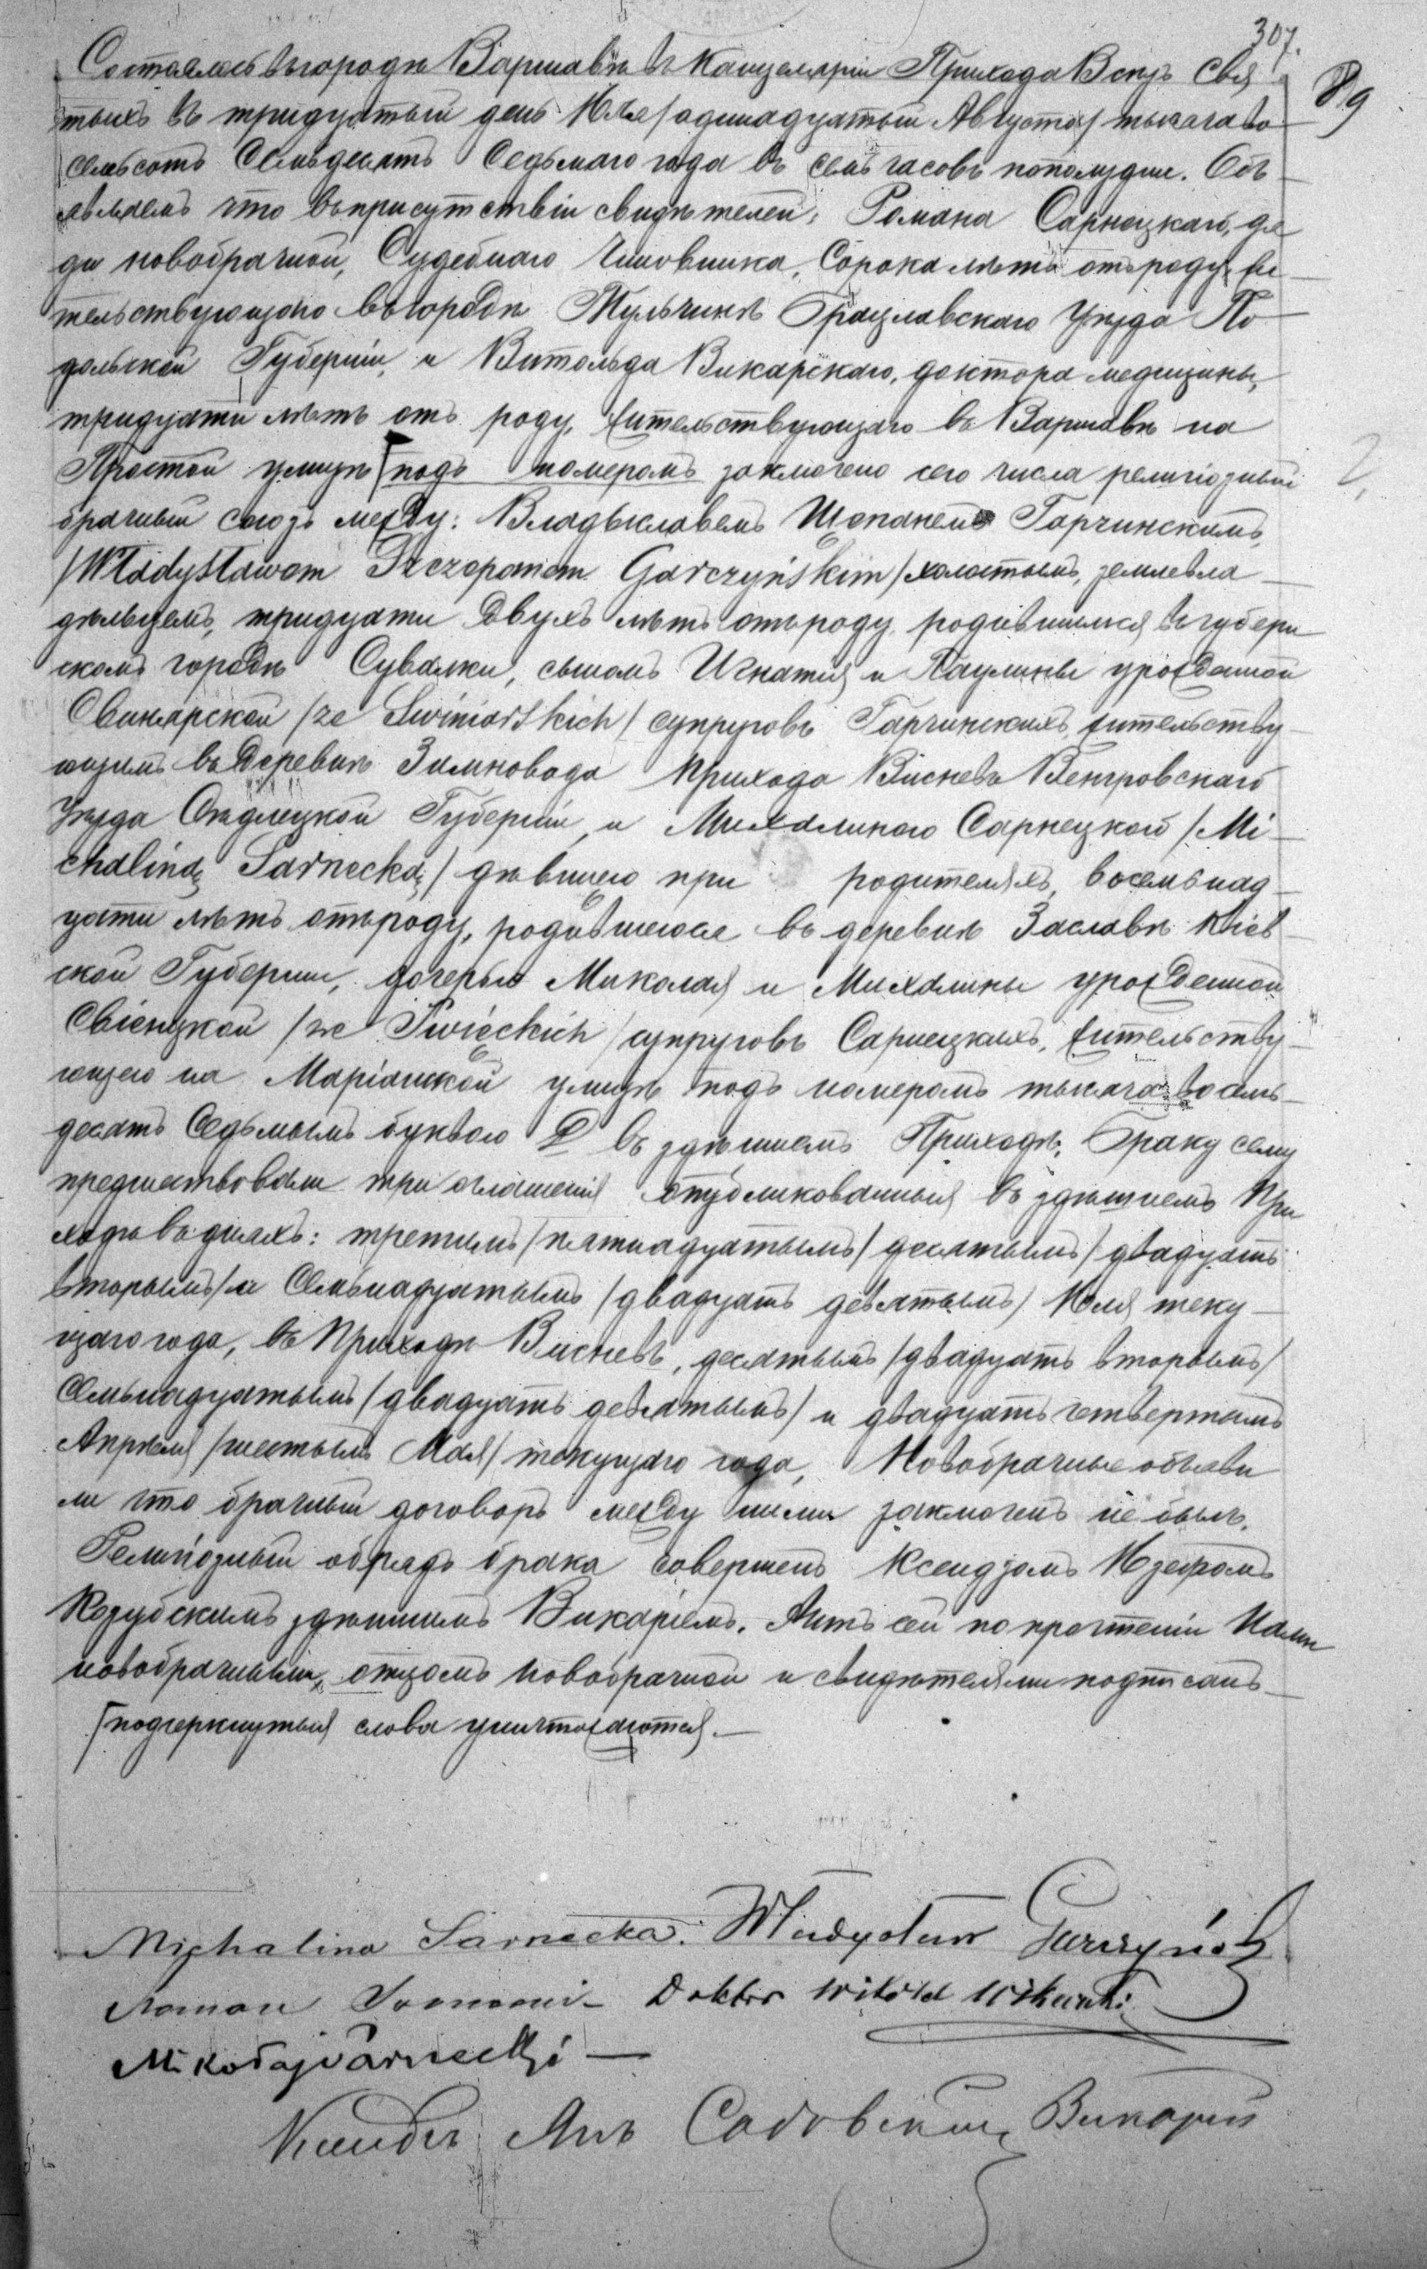 307.
89
Состоялось въ городѣ Варшавѣ въ Канцеляріи Прихода Всѣхъ Свя
тыхъ въ тридцатый день Юля /одинадцатый Августа/ тысяча во
семьсотъ Семьдесятъ Седьмаго года въ семь часовъ пополудни. Объ
являемъ что въ присутствіи свидѣтелей: Романа Сарнецкаго, дя
ди новобрачной, Судебнаго Чиновника, Сорока лѣтъ отъ роду, жи
тельствующаго въ городѣ Тульчинѣ Брацлавскаго Уѣзда По
дольской Губерніи, и Витольда Викарскаго, доктора медицины,
тридцати лѣтъ отъ роду, жительствующаго въ Варшавѣ на
Простой улицѣ подъ номеромъ заключено сего числа религіозный
брачный союзъ между: Владыславемъ Щепанемъ Гарчинскимъ,
/Władysławem Szczepanem Garczyńskim/ холостымъ, землевла
дѣльцемъ, тридцати двухъ лѣтъ отъ роду, родившимся въ губерн
скомъ городѣ Сувалки, сыномъ Игнатія и Паулины урожденной
Свинярской /ze Swiniarskich/ супруговъ Гарчинскихъ, жительству
ющимъ въ деревнѣ Зимновода Прихода Висневъ Венгровскаго
Уѣзда Сѣдлецкой Губерніи, и Михалиною Сарнецкой /Mi
chaliną Sarnecką/ дѣвицею при родителяхъ, восемьнад
цати лѣтъ отъ роду, родившеюся въ деревнѣ Заславѣ Кіев
ской Губерніи, дочерью Миколая и Михалины урожденной
Свіенцкой /ze Święckich/ супруговъ Сарнецкихъ, жительству
ющею на Маріанской улицѣ подъ номеромъ тысяча восемь
десятъ Седьмымъ буквою D въ здѣшнемъ Приходѣ. Браку сему
предшествовали три оглашенія опубликованныя въ здѣшнемъ При
ходѣ въ дняхъ: третьимъ /пятнадцатымъ/ десятымъ /двадцать
вторымъ/ и Семьнадцатымъ /двадцать девятымъ/ Юля теку
щаго года, въ Приходѣ Висневъ, десятымъ /двадцать вторымъ/
Семьнадцатымъ /двадцать девятымъ/ и двадцать четвертымъ
Апрѣля /шестымъ Мая/ текущаго года, Новобрачные объяви
ли что брачный договоръ между ними заключенъ не былъ.
Религіозный обрядъ брака совершенъ Ксендзомъ Юзефомъ
Козубскимъ здѣшнимъ Викаріемъ. Актъ сей по прочтеніи Нами
новобрачными, отцомъ новобрачной и свидѣтелями подписанъ
подчеркнутыя слова уничтожаются.
Michalina Sarnecka. Władysław Garczyński
Roman Sarnecki Doktor Witold Wikarski
Mikołaj Sarnecki
Ксендзъ Янъ Садовскій Викарій